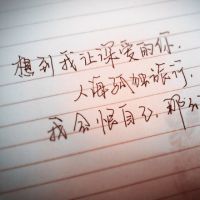 想到我让深爱的你
人海孤独旅行
我会恨自己 那么